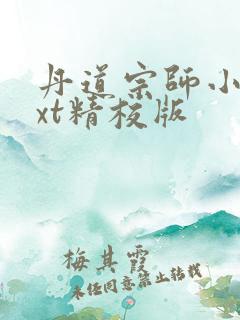 丹道宗师小
xt精校版
梅其霞
未经同意禁止转载